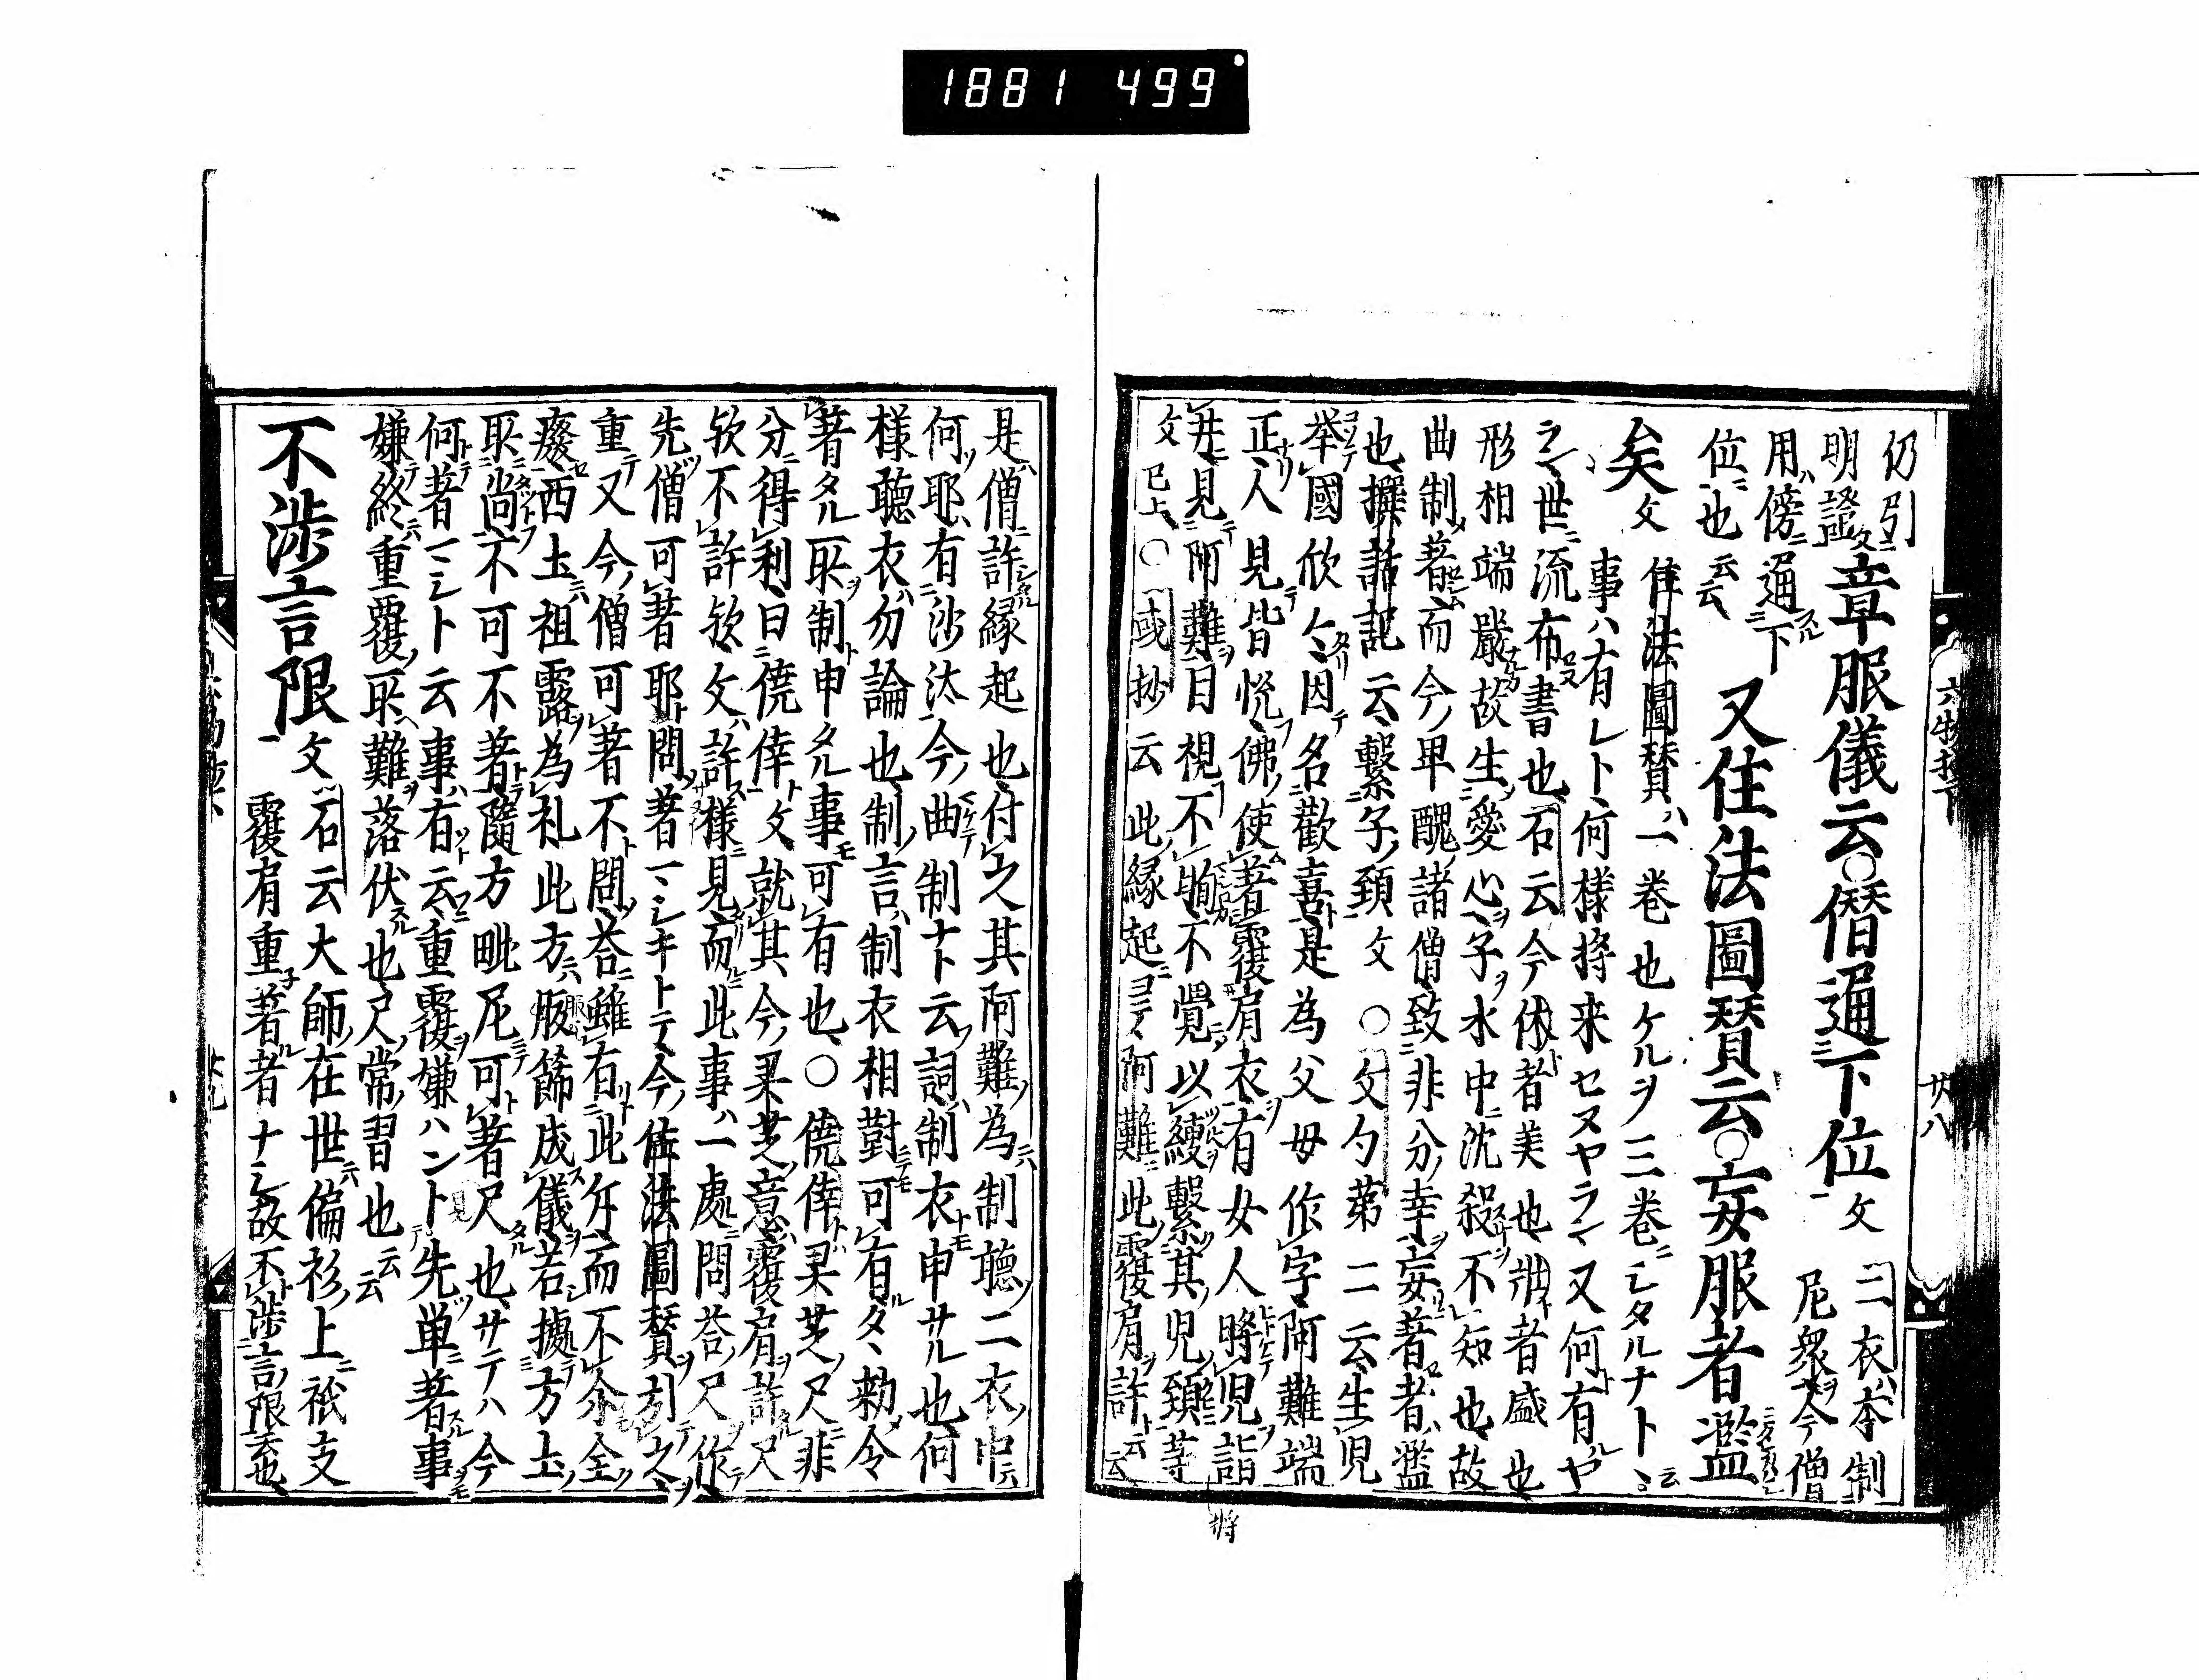 1881 499
六物抄下
廿八
仍引
明證文
章服儀云○僭通下位文
二衣本制
尼衆今僧
用傍通下
位也云云
又住法圖賛云○妄服者濫
矣文
住法圖賛一巻也ケルヲ三巻ニシタルナト云
事ハ有レト何様将来セヌヤラン又何有ルヤ
之世流布書也石云今休者美也壯者盛也
形相端嚴故生愛心子水中沈殺不知也故
曲制著而今卑醜諸僧致非分幸妄著者濫
也撰話記云繋子頚文○文勺第二云生児
挙國欣々因名歡喜是為父母作字阿難端
正人見皆悦佛使著覆肩衣有女人將児詣
井見阿難目視不眴不覺以綆繋其児頚等
文已上○或抄云此縁起ヨテ阿難此覆肩許云云
將
是僧許縁起也付之其阿難為制聽二衣中云
何耶有沙汰今曲制ナト云詞制衣申サル也何
様聽衣勿論也制言制衣相對可有タヽ勅令
著タル取制申タル事可有也○僥倖果芝尺非
分得利曰僥倖文就其今果芝意覆肩許尺
欤不許欤文許様見而此事一處問荅尺作
先僧可著耶問著一シキトテ今住法圖賛引之
重又今僧可著不問荅雖有此分而不分全
癈西土祖露為礼此方服餝成儀若據方土
取尚不可不著隨方毗尼可著尺也サテハ今
何著一シト云事有云重覆嫌ハント先単著事
嫌終重覆取難落伏也尺常習也云云
不渉言限文
石云大師在世偏衫上祇支
覆肩重著者ナシ故不渉言限云也